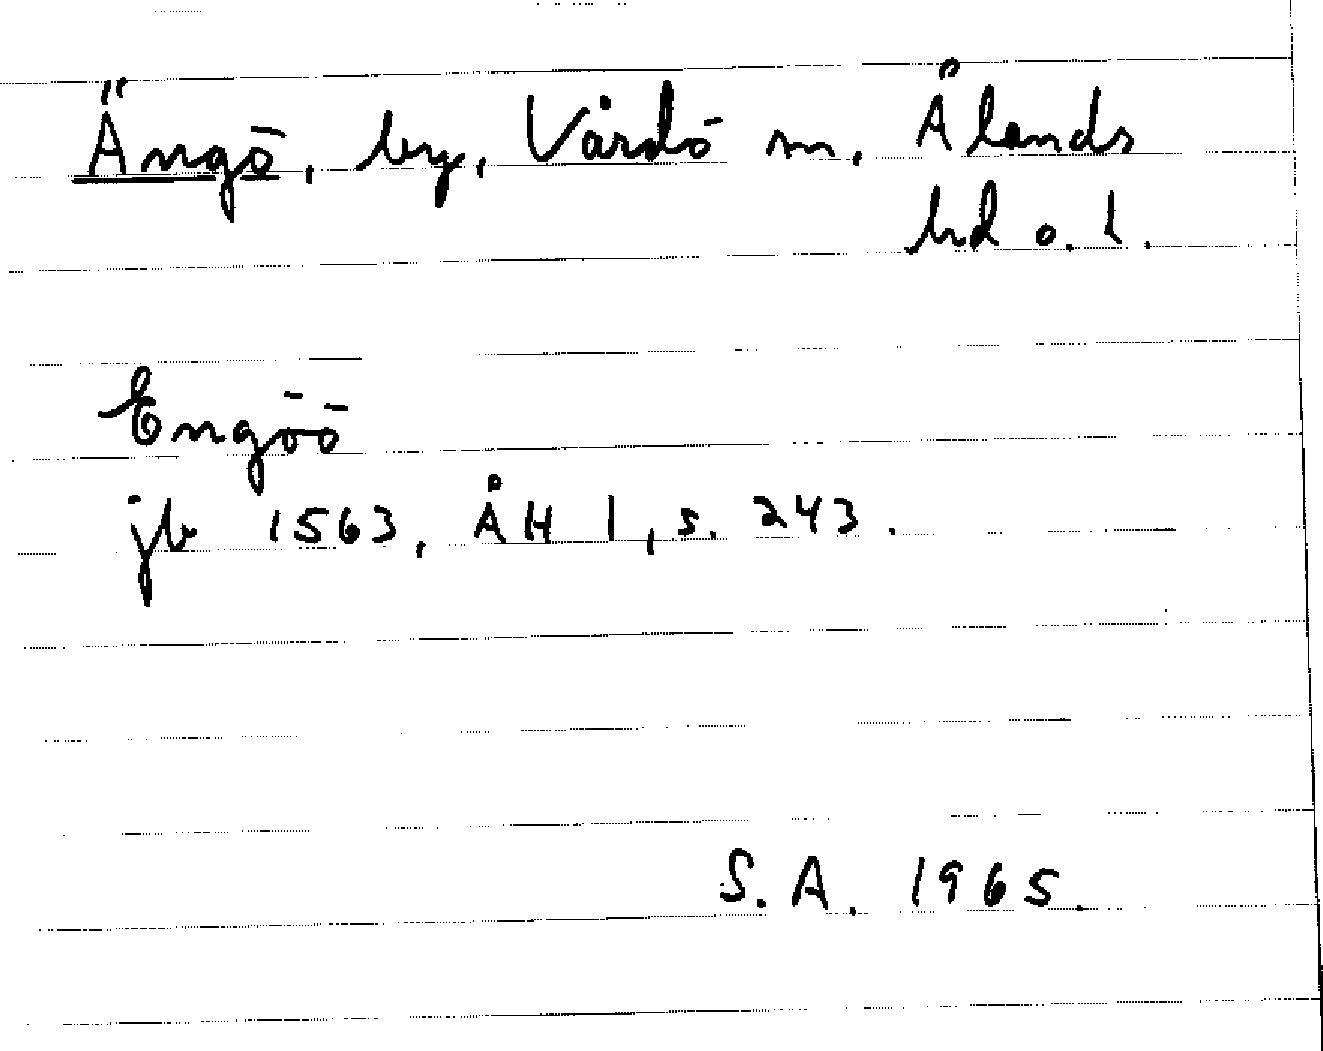 Ängö, by, Vårdö sn, Ålands
hd o. l.
Engöö
jb 1563, ÅH 1, s. 243.
S. A. 1965.